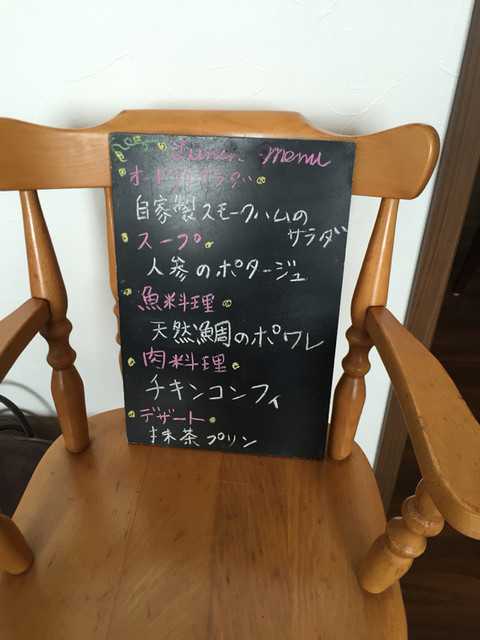 Lunch menu
オードブルサラダ
自家製スモークハムの
サラダ
スープ
人参のポタージュ
魚料理
天然鯛のポワレ
肉料理
チキンコンフィ
デザート
抹茶プリン